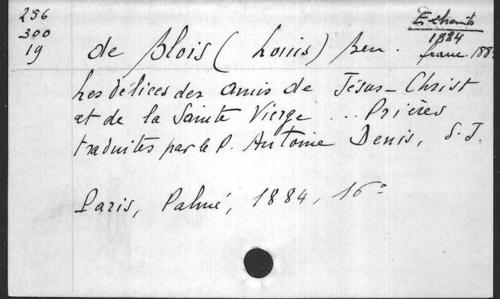 256
300
19
1884
franc. 188
de Blois (Louis) Ben.
Les délices des amis de Jésus-Christ
et de la Sainte Vierge ... Prières
traduites par le P. Antoine Denis, S.J.
Paris, Palmé, 1884, 16°